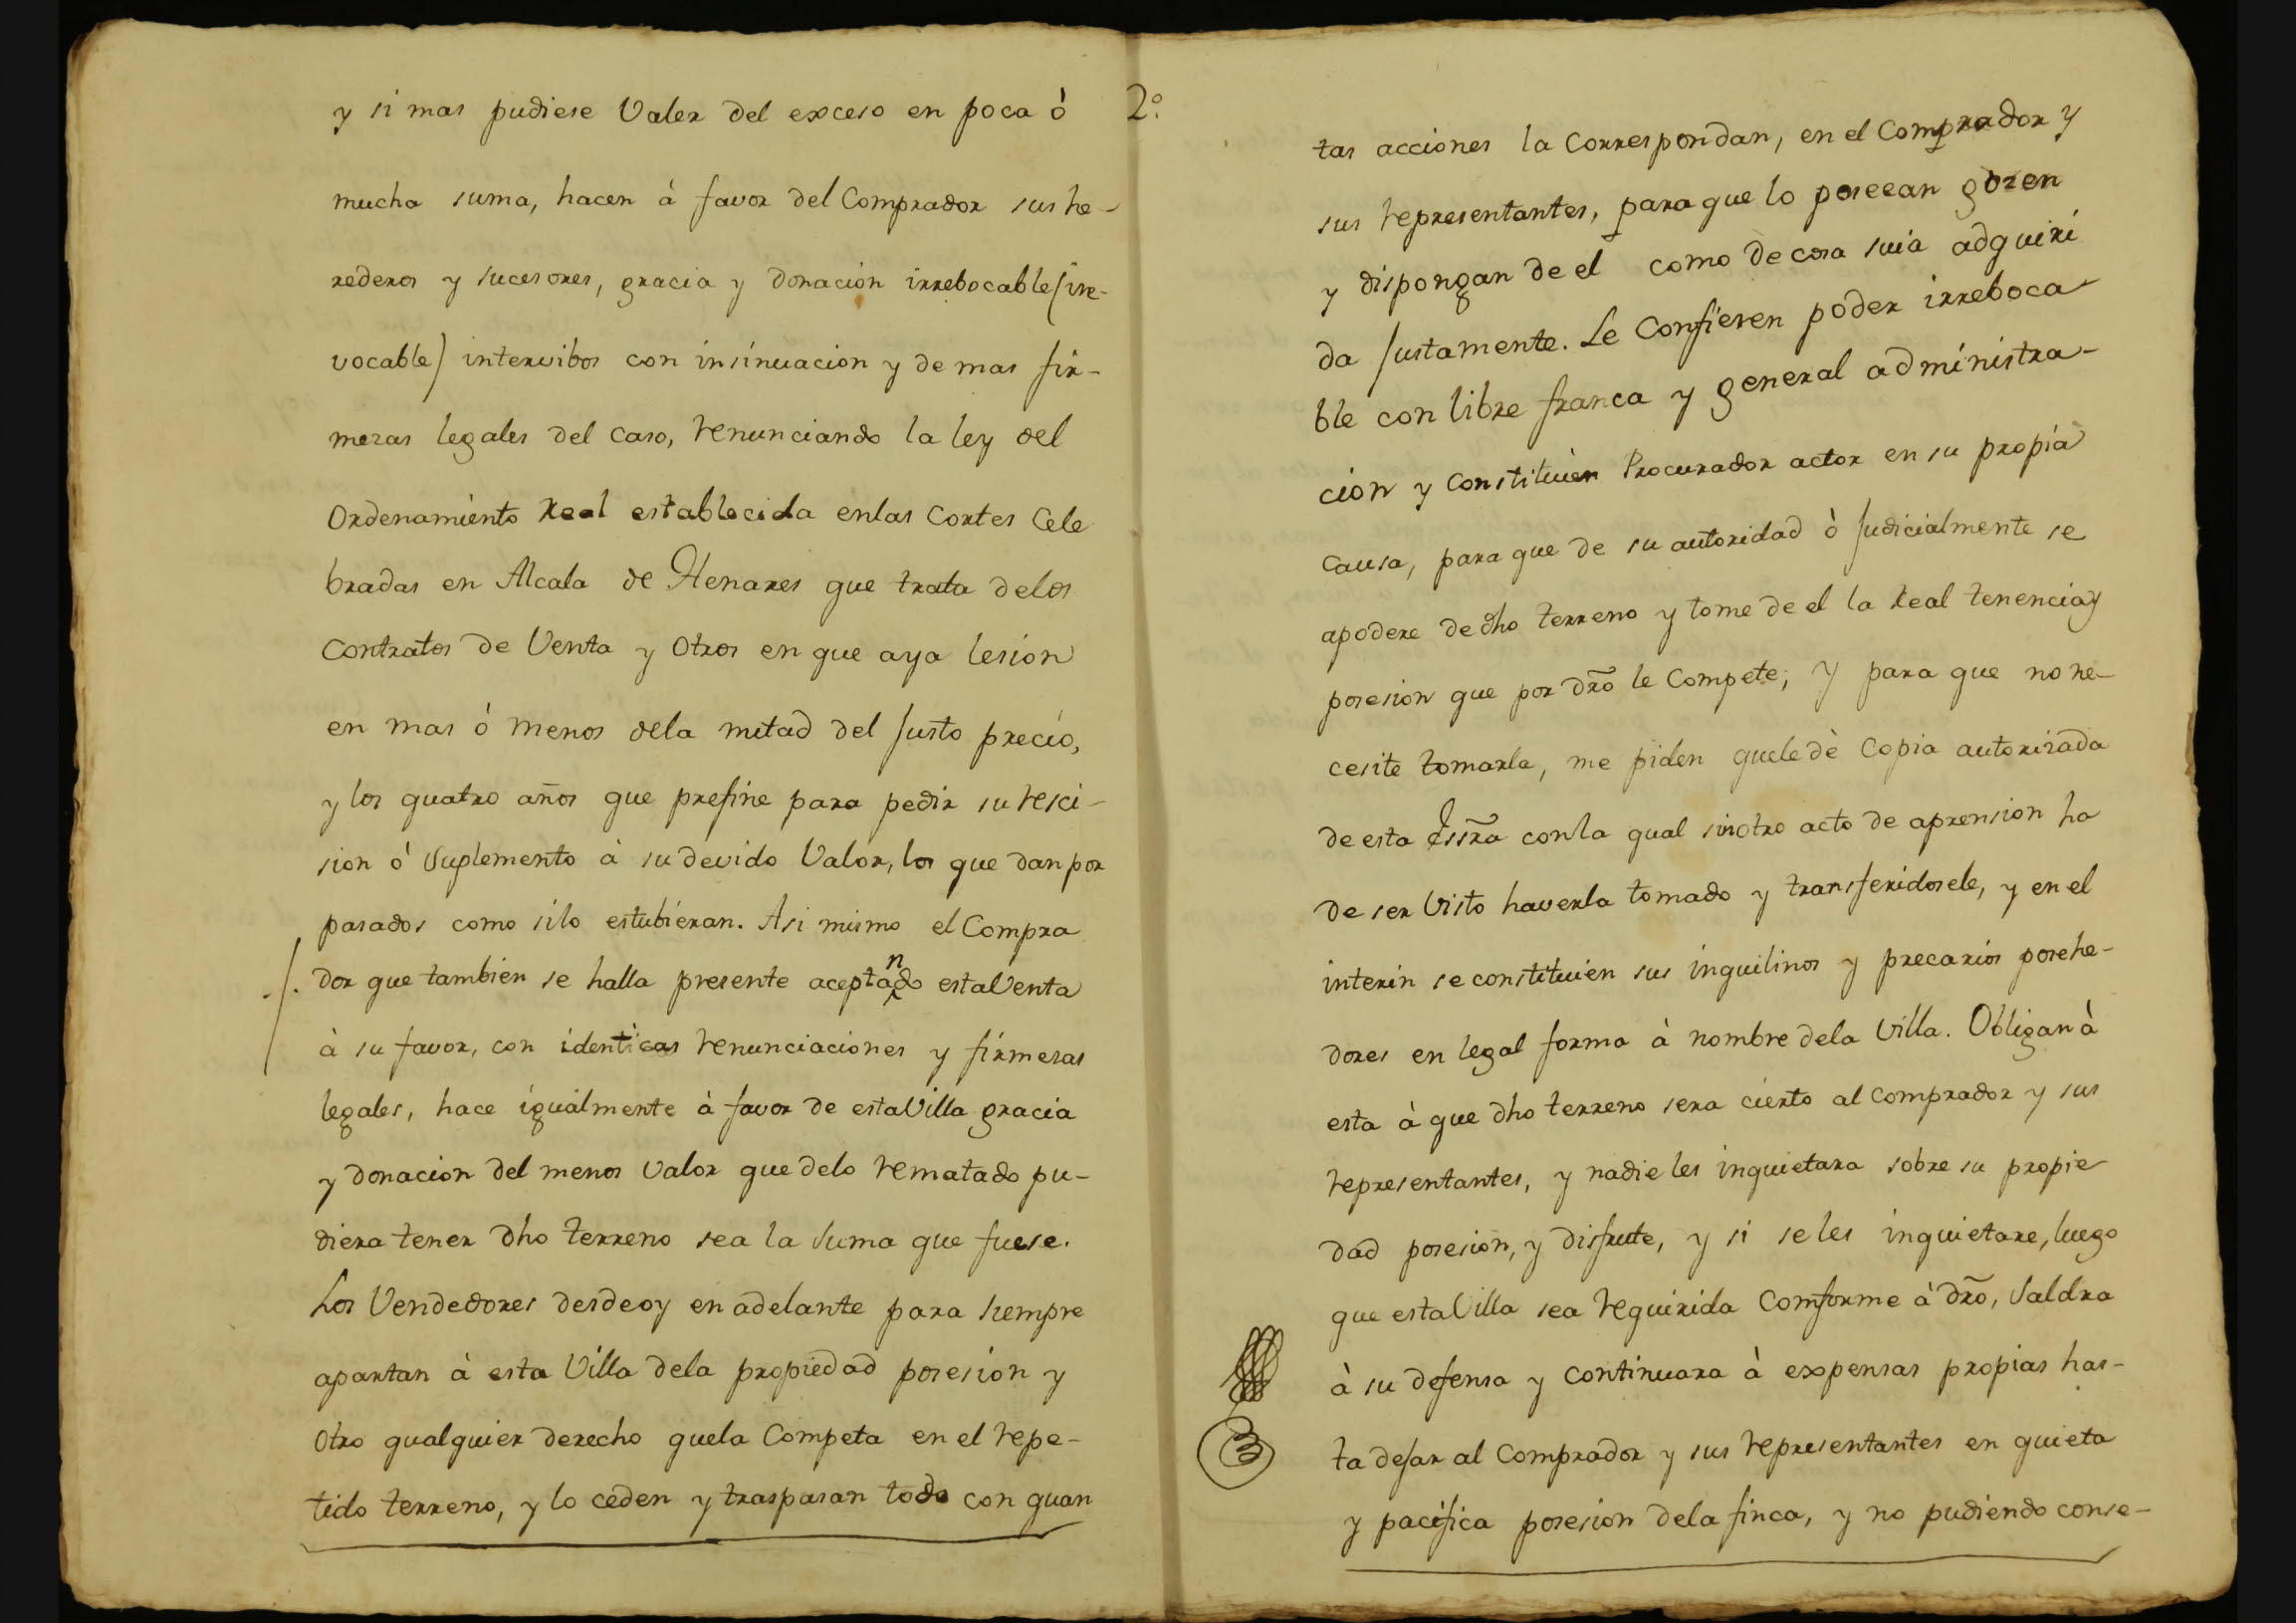 y si mas pudiese Valer del exceso en poca ò
mucha suma, hacen à favor del Comprador sus he-
rederos y sucesores, gracia y donacion irrebocable (irre-
vocable) intervibos con insinuacion y de mas fir-
mezas legales del caso, renunciando la ley del
Ordenamiento Real establecida enlas Cortes Cele
bradas en Alcala de Henares que trata delos
Contratos de Venta y Otros en que aya lesion
en mas ò menos dela mitad del Justo precio,
y los quatro años que prefine para pedir su resci-
sion ò Suplemento à su devido Valor, los que dan por
pasados como silo estubieran. Asi mismo el Compra
./. dor que tambien se halla presente aceptando esta Venta
à su favor, con identicas renunciaciones y firmesas
legales, hace igualmente à favor de esta Villa gracia
y donacion del menos valor que delo rematado pu-
diera tener dho terreno sea la Suma que fuese.
Los Vendedores desdeoy en adelante para siempre
apartan à esta Villa dela propiedad posesion y
Otro qualquier derecho quela Competa en el repe-
tido terreno, y lo ceden y traspasan todo con quan
2.º
tas acciones la Correspondan, en el Comprador y
sus representantes, para que lo poseean gozen
y dispongan de el como de cosa suia adquiri
da Justamente. Le Confieren poder irreboca
ble con libre franca y general administra-
cion y Constituien Procurador actor en su propia
Causa, para que de su autoridad ò Judicialmente se
apodere de dho terreno y tome de el la Real tenencia y
posesion que por dro le Compete; y para que no ne-
cesite tomarla, me piden quele dè Copia autorizada
de esta Essra conla qual sin otro acto de aprension ha
de ser Visto haverla tomado y transferidosele, y en el
interin se constituien sus inquilinos y precarios posehe-
dores en legal forma à nombre dela Villa. Obligan à
esta à que dho terreno sera cierto al Comprador y sus
representantes, y nadie les inquietara sobre su propie
dad posesion, y disfrute, y si se les inquietare, luego
que esta Villa sea requirida Comforme à dro, Saldra
à su defensa y Continuara à expensas propias has-
ta dejar al Comprador y sus representantes en quieta
y pacifica posesion dela finca, y no pudiendo conse-